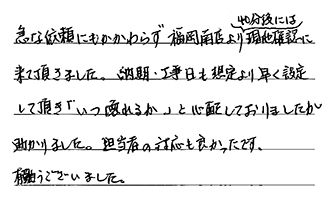 40分後には
急な依頼にもかかわらず福岡南店より現地確認に
来て頂きました。納期・工事日も想定より早く設定
して頂き「いつ直れるか」と心配しておりましたが
助かりました。担当者の対応も良かったです。
有難うございました。